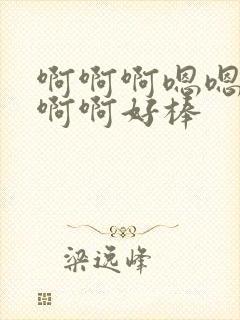 啊啊啊嗯嗯
啊啊好棒
梁远峰